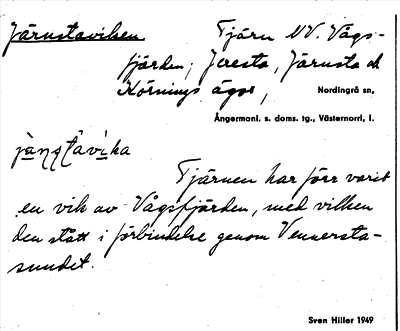 Järnstaviken Tjärn NV. Vågs-
fjärden; Jeresta, Järnsta ok
Körnings ägor,
Nordingrå sn,
Ångermanl. s. doms. tg., Västernorrl, l.
Tjärnen har förr varit
en vik av Vågsfjärden, med vilken
den stått i förbindelse genom Vennersta-
sundet.
Sven Hiller 1949